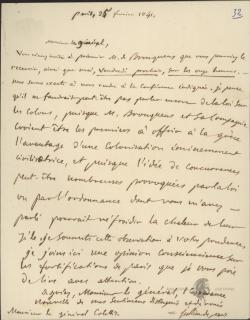 32
paris, 25 février 1841.
Monsieur le général,
Vous ainsi à prévenir M. de Bourqueney que vous pourriez le
recevoir, ainsi que moi, vendredi prochain, sur les onze heures. —
nous serons exacts à nous rendre à la conférence indiquée. je pense
qu'il ne faudrait peut être pas parler encore de la loi sur
les colons, puisque M. et sa Compagnie
doivent être les premiers à offrir à la grèce
l'avantage d'une Colonisation
civilisatrice, et puisque l'idée de concurrences
peut être nombreuses provoquées par la loi
ou par l'ordonnance dont vous m'avez
parlé pouvait refroidir la chaleur de leur
je soumets cette observation à votre prudence,
je joins ici une opinion consciencieuse sur
les fortifications de paris que je vous prie
de lire avec attention.
agréez, Monsieur le général, l'assurance
nouvelle de mes sentimens distingués et dévoués
Monsieur le général Coletti.